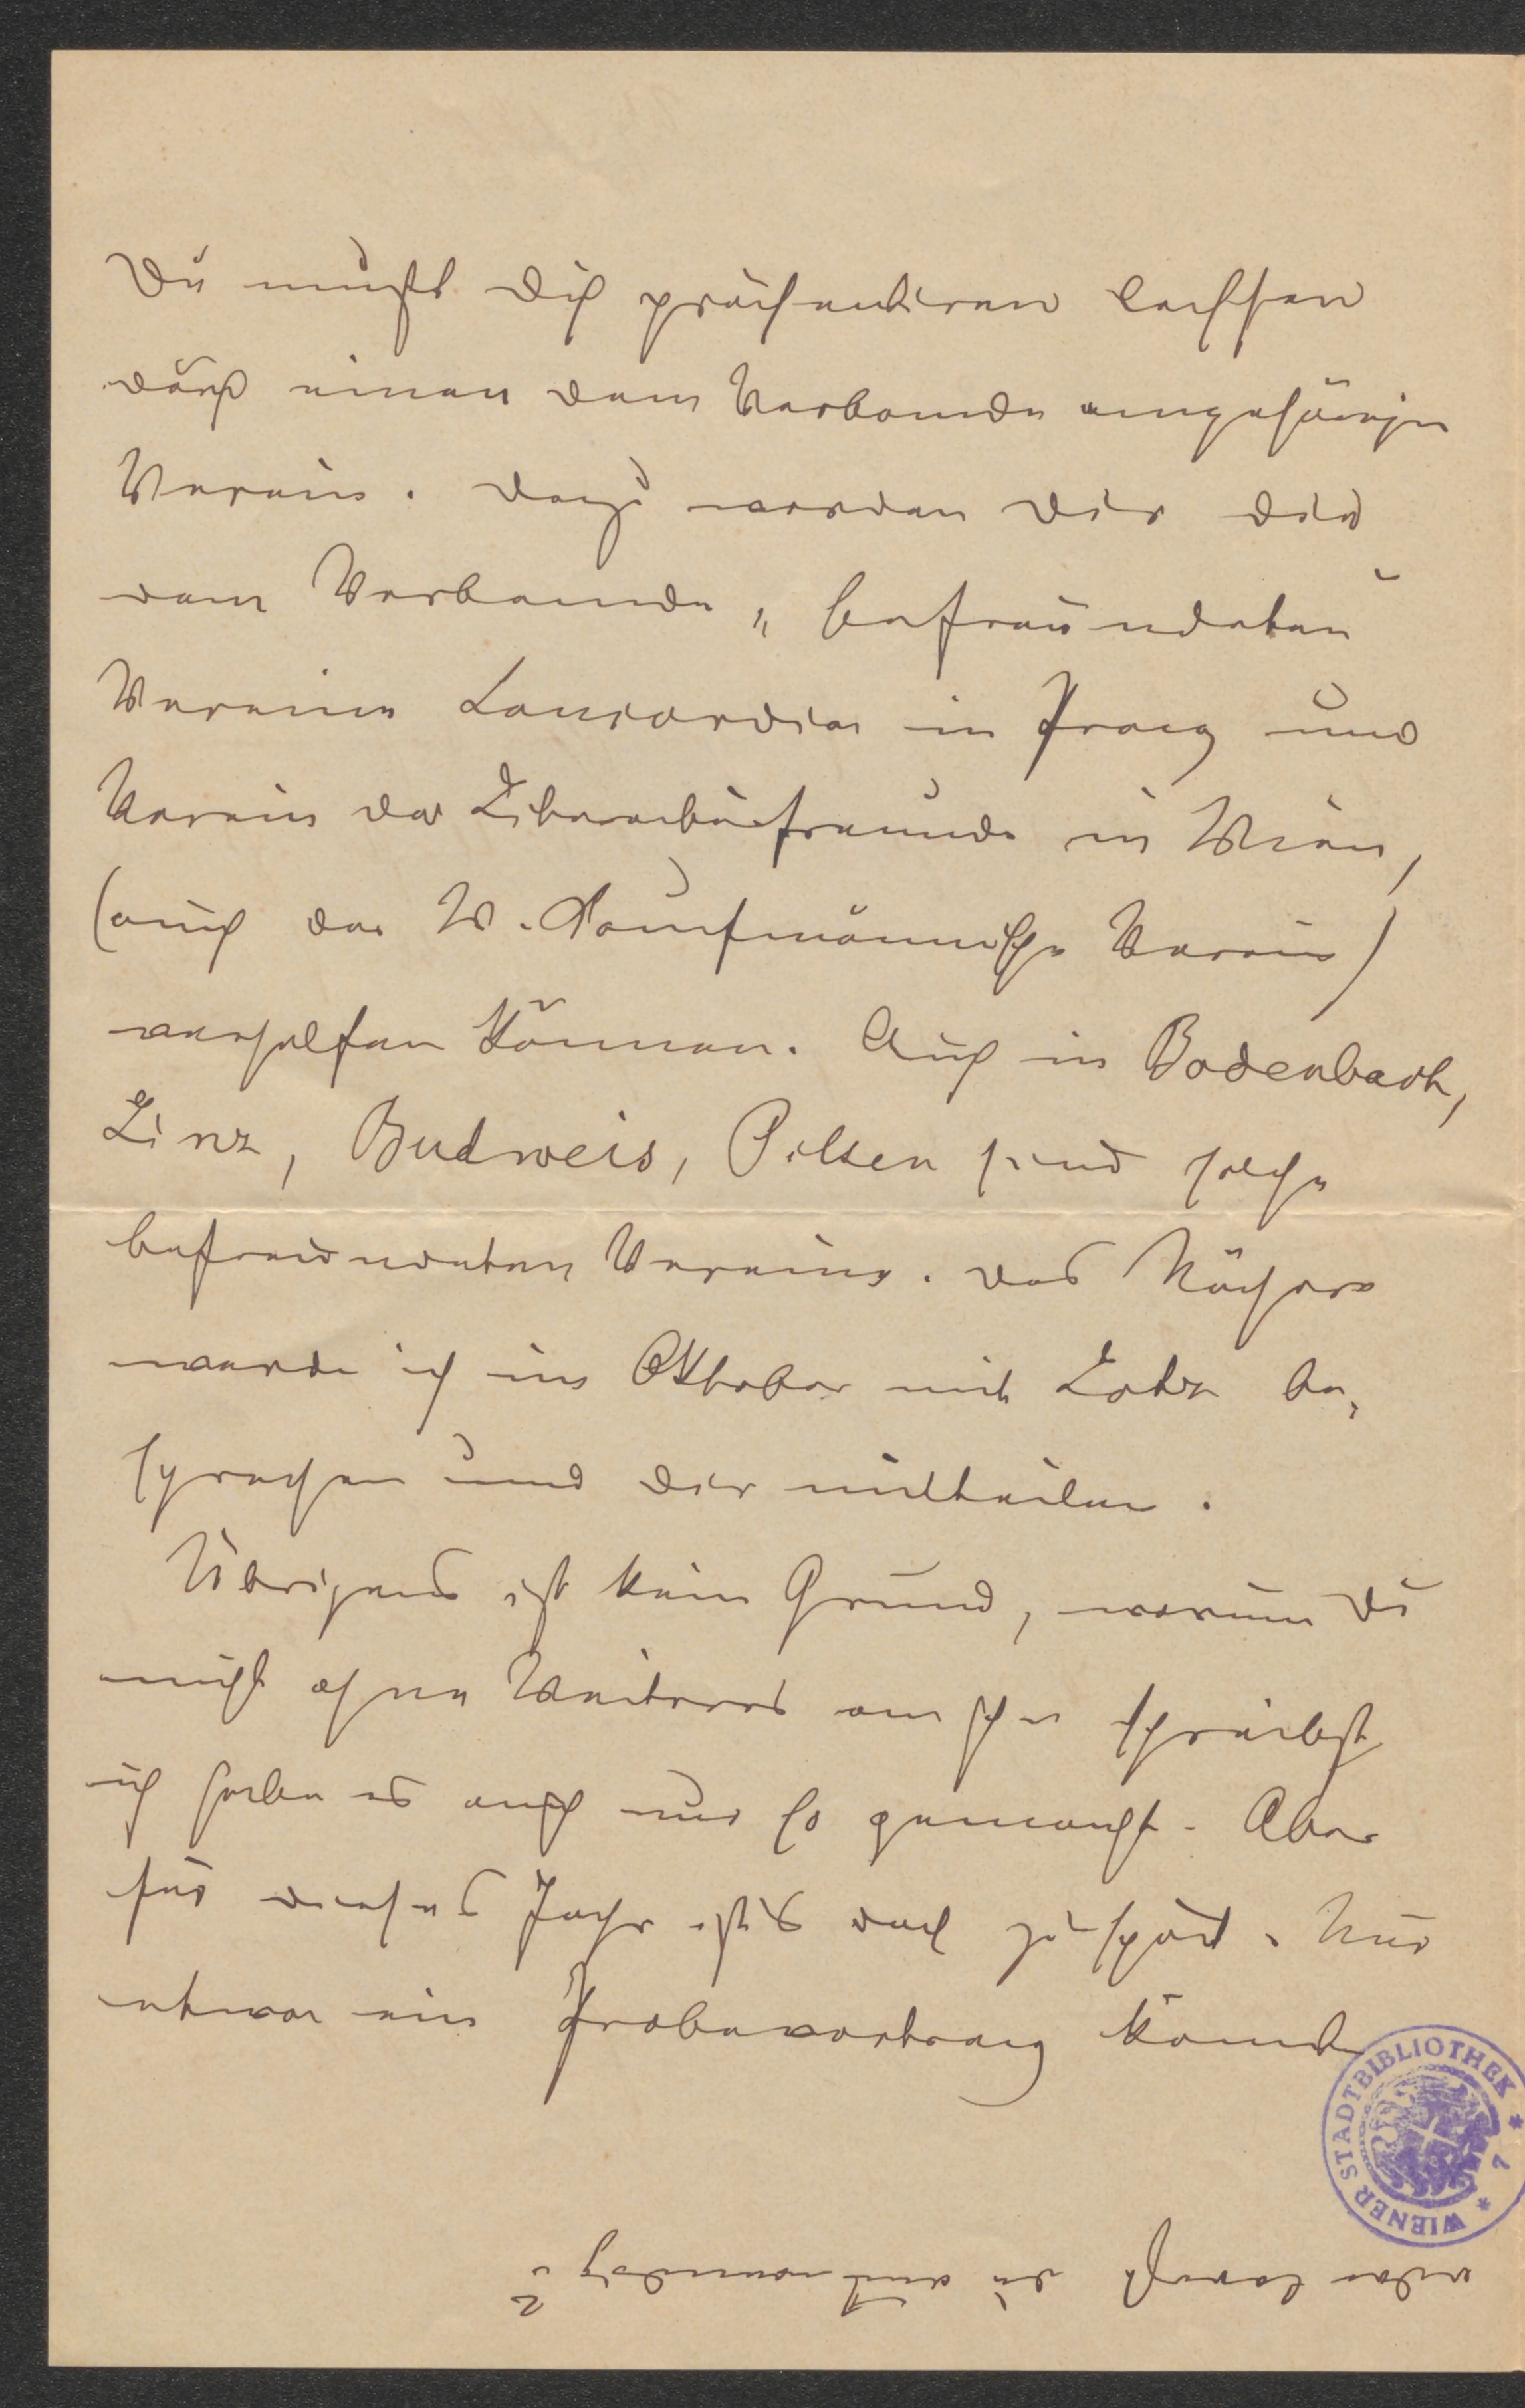 Du mußt Dich präsentieren lassen
durch einen dem Verbande angehörigen
Verein. Dazu werden Dir die
dem Verbande „befreundeten
Vereine Concordia in Prag und
Verein der Literaturfreunde in Wien,
(auch der W. Kaufmännische Verein)
verhelfen können. Auch in Bodenbach,
Linz, Budweis, Pilsen sind solche
befreundeten Vereine. Das Nähere
werde ich im Oktober mit Lotz be-
sprechen und Dir mittheilen.
Übrigens ist kein Grund, warum Du
nicht ohne Weiteres an schreibst
ich habe es auch nur so gemacht. Aber
für dieses Jahr ist's doch zu spät. Nur
etwa ein Probevortrag könnte
WIENER STADTBIBLIOTHEK * 7 *
oder Du